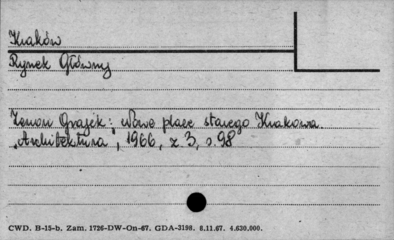 Kraków
Rynek Główny
Zenon Grajek: Nowe place starego Krakowa.
„Architektura", 1966, z.3, s.98
CWD. B-15-b. Zam. 1726-DW-On-67. GDA-3198. 8.11.67. 4.630.000.